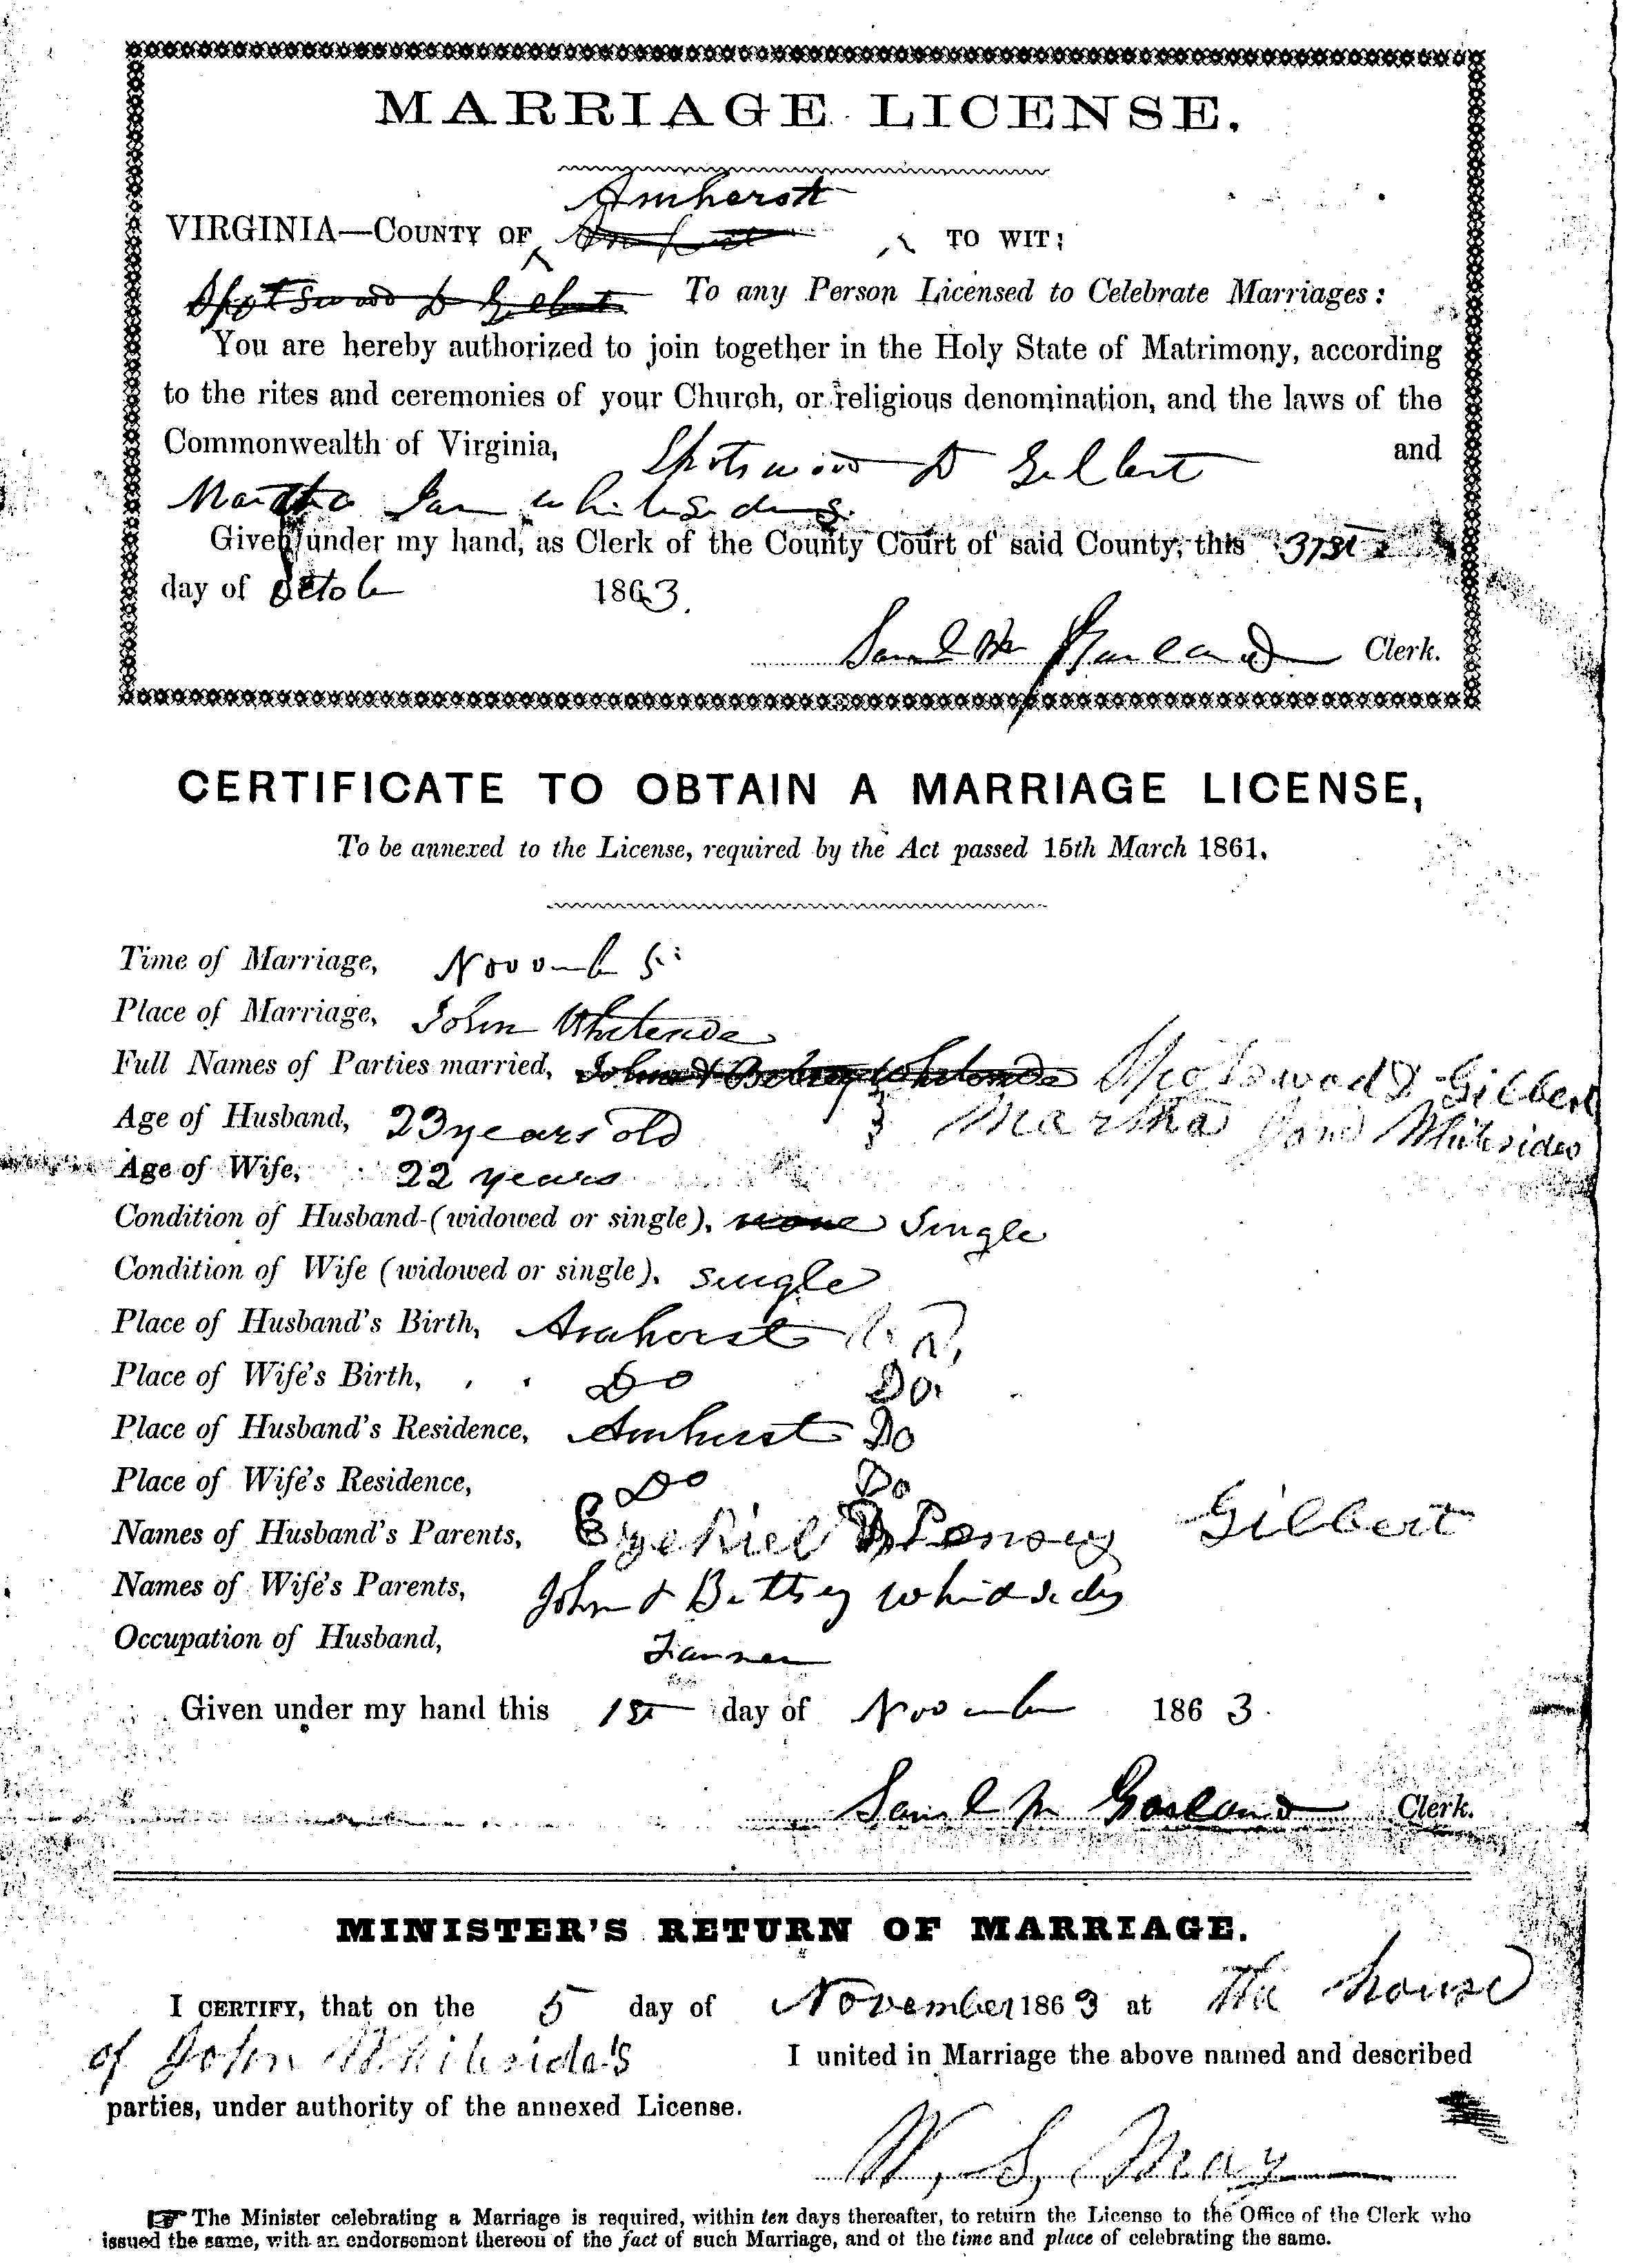 MARRIAGE LICENSE.
Amherst
VIRGINIA—COUNTY OF TO WIT:
Spotswood D Gilbert To any Person Licensed to Celebrate Marriages:
You are hereby authorized to join together in the Holy State of Matrimony, according
to the rites and ceremonies of your Church, or religious denomination, and the laws of the
Commonwealth of Virginia, Spotswood D Gilbert and
Martha Jane Whitesides
Given under my hand, as Clerk of the County Court of said County, this 31st
day of Octob 1863.
Saml M Garland Clerk.
CERTIFICATE TO OBTAIN A MARRIAGE LICENSE,
To be annexed to the License, required by the Act passed 15th March 1861.
Time of Marriage, Novemb 5
Place of Marriage, John Whitesides
Full Names of Parties married, John & Betsey Whitesides Spotswood D Gilbert
Age of Husband, 23 years old } Martha Jane Whitesides
Age of Wife, 22 years
Condition of Husband (widowed or single), none Single
Condition of Wife (widowed or single), single
Place of Husband's Birth, Amherst
Place of Wife's Birth, Do Do.
Place of Husband's Residence, Amherst Do
Place of Wife's Residence, Do Do
Names of Husband's Parents, Ezekiel Gilbert
Names of Wife's Parents, John & Bettsey Whitesides
Occupation of Husband, Farmer
Given under my hand this 1st day of November 1863.
Saml M Garland Clerk.
MINISTER'S RETURN OF MARRIAGE.
I CERTIFY, that on the 5 day of November 1863 at the house
of John Whiteside's I united in Marriage the above named and described
parties, under authority of the annexed License.
W. S. May
☞ The Minister celebrating a Marriage is required, within ten days thereafter, to return the License to the Office of the Clerk who
issued the same, with an endorsement thereon of the fact of such Marriage, and of the time and place of celebrating the same.